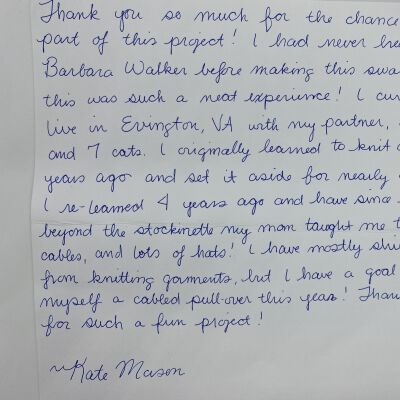 Thank you so much for the chance
part of this project! I had never
Barbara Walker before making this
this was such a neat experience! I
live in Evington, VA with my partner,
and 7 cats. I originally learned to knit
years ago and set it aside for nearly
I re-learned 4 years ago and have since
beyond the stockinette my mom taught me
cables, and lots of hats! I have mostly
from knitting garments, but I have a goal
myself a cabled pull-over this year!
for such a fun project!
~Kate Mason